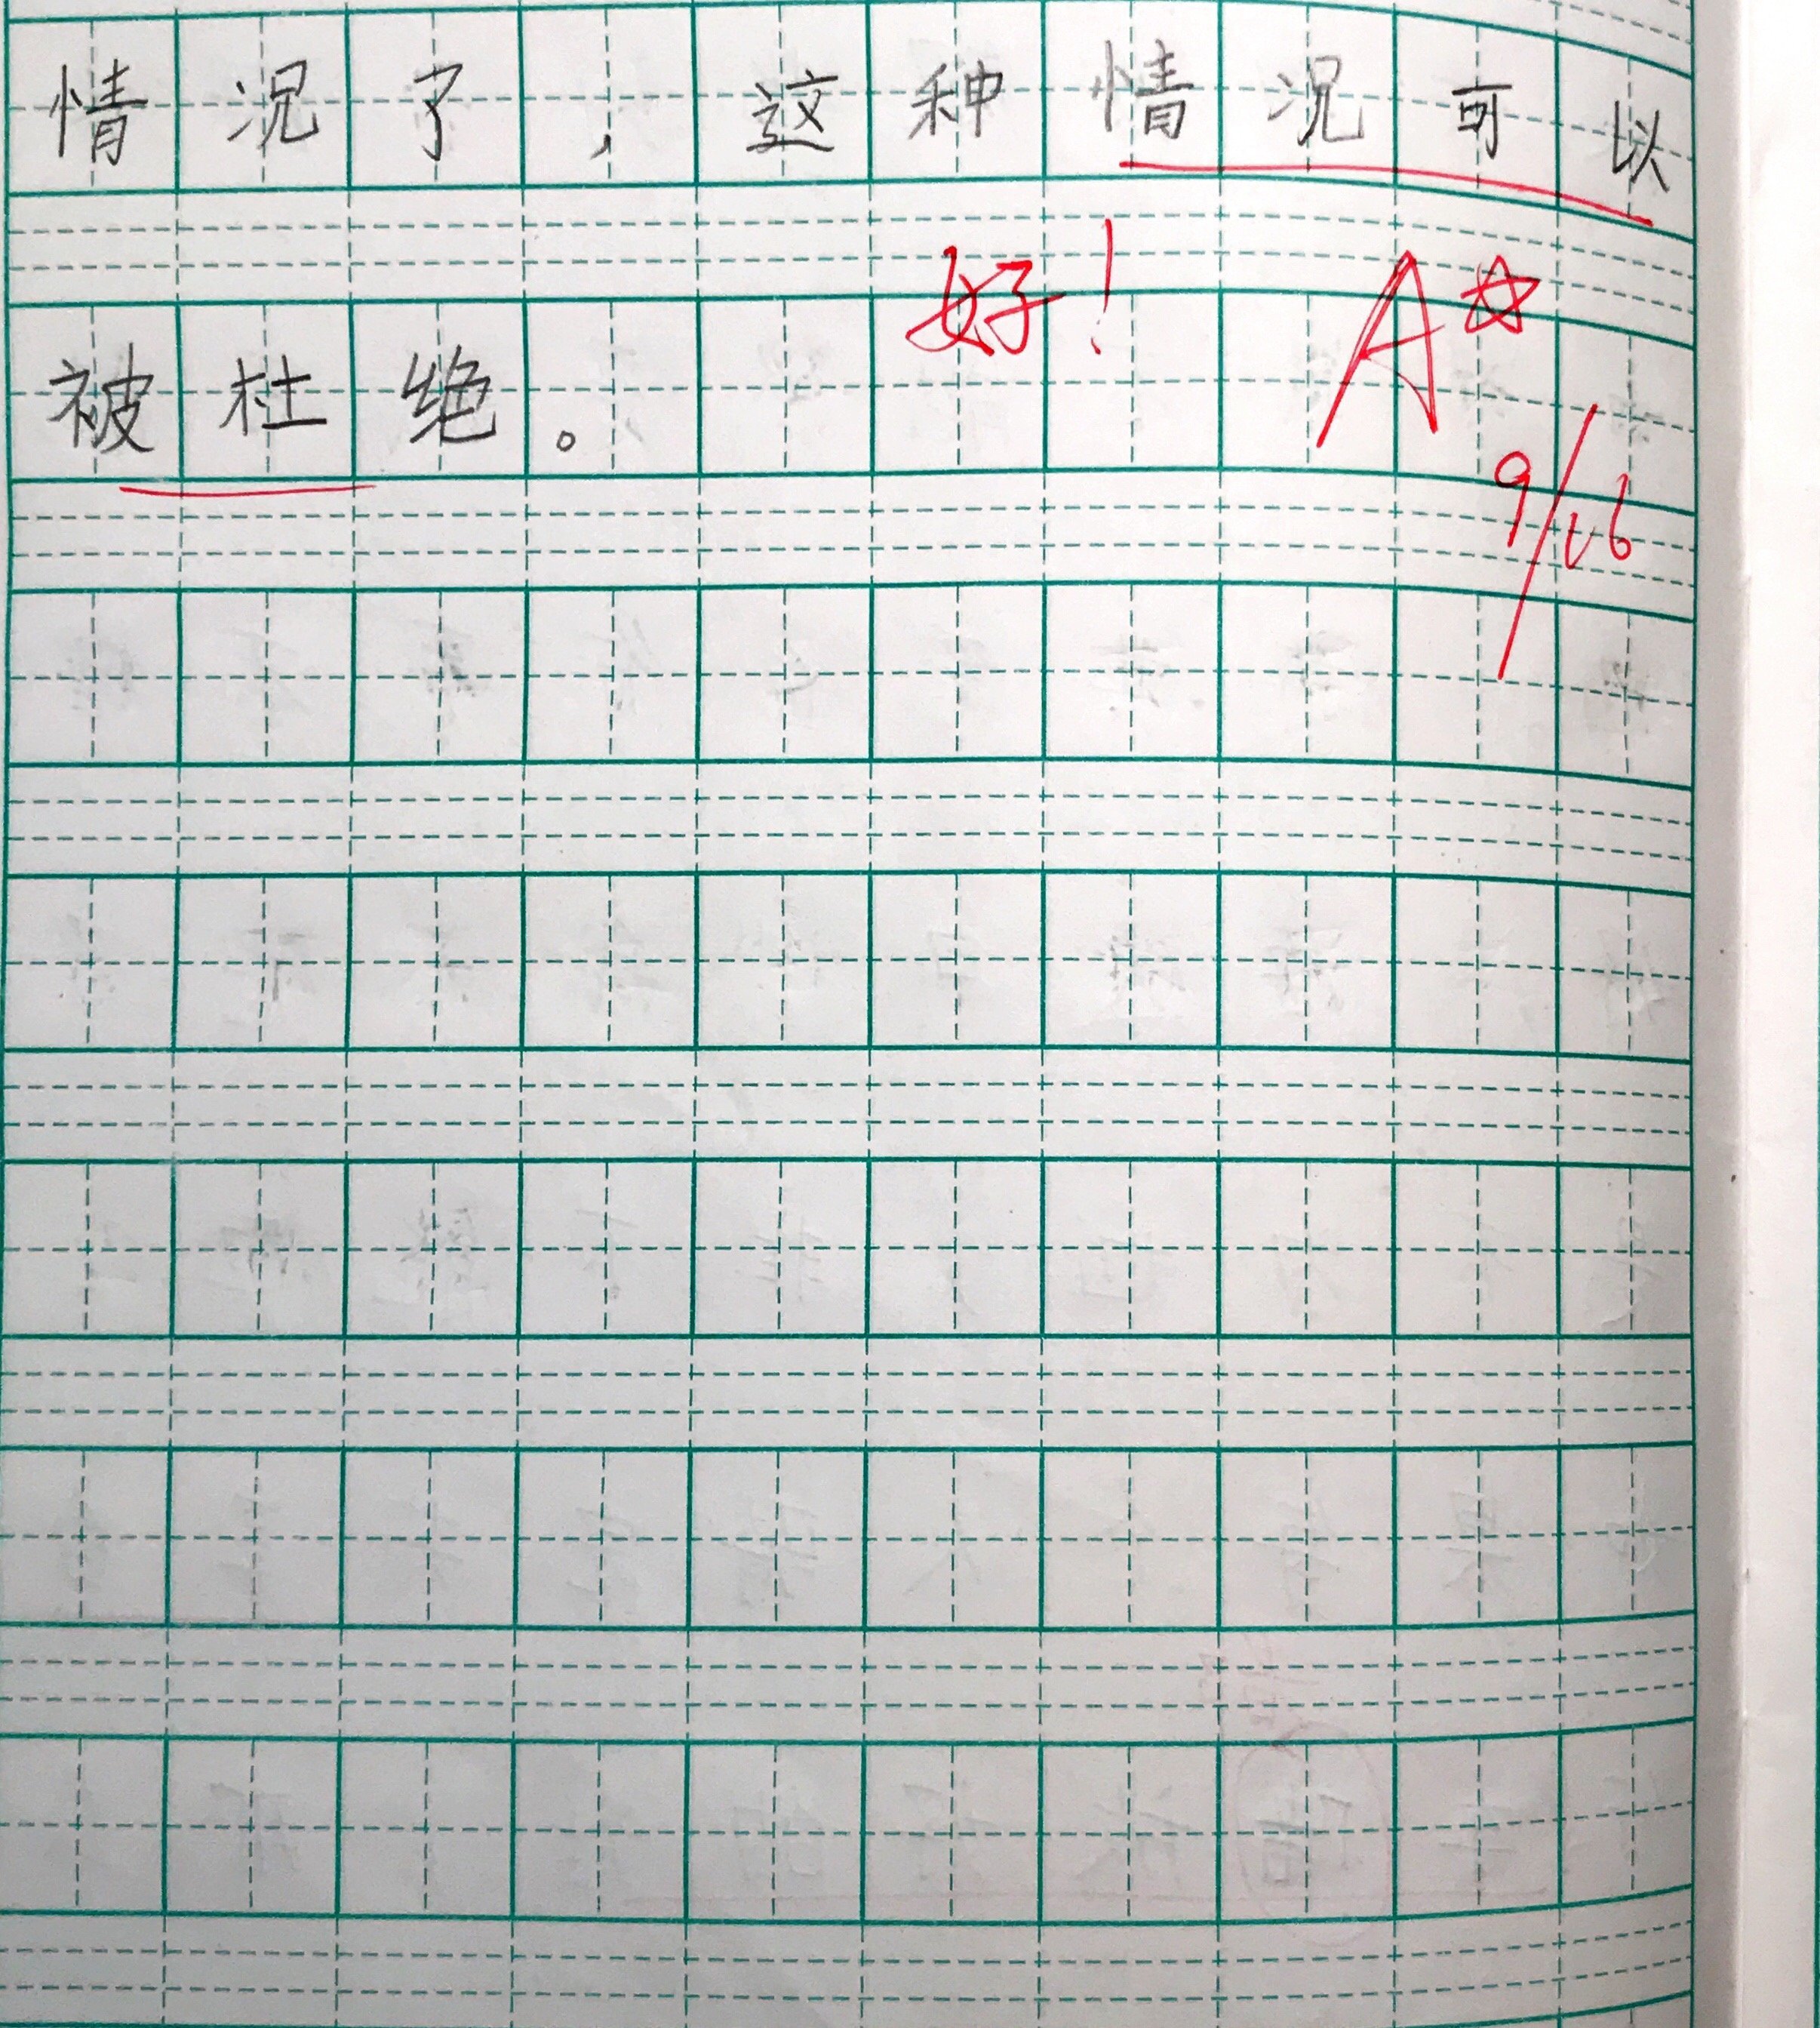 情况了，这种情况可以
好！ A☆
被杜绝。
9/16